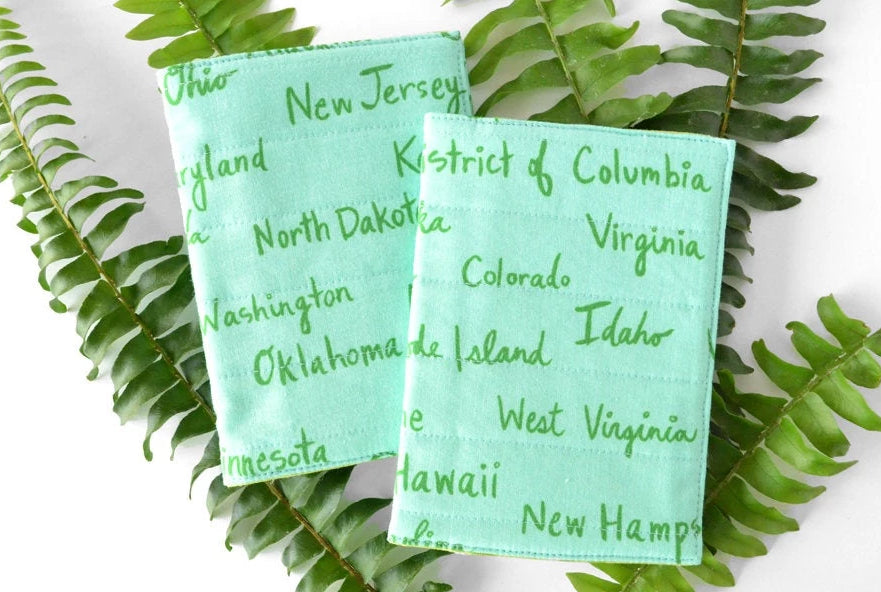 Ohio
New Jersey
ryland
K
North Dakot
a
Washington
Oklahoma
nnesota
strict of Columbia
ka
Virginia
Colorado
Idaho
de Island
ne
West Virginia
Hawaii
New Hamps